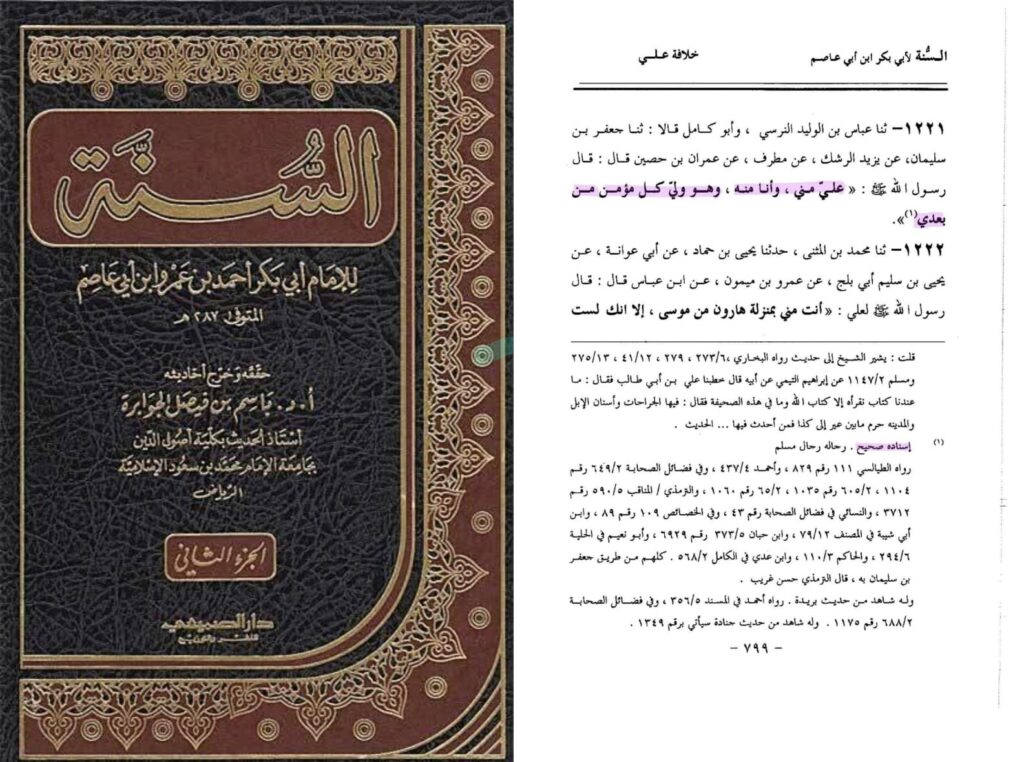 السُّنَّة
للإمام أبي بكر أحمد بن عمرو ابن أبي عاصم
المتوفى ٢٨٧ هـ
حققه وخرج أحاديثه
أ. د. باسم بن فيصل الجوابرة
أستاذ الحديث بكلية أصول الدين
بجامعة الإمام محمد بن سعود الإسلامية
الرياض
الجزء الثاني
دار الصميعي
للنشر والتوزيع
السُّنة لأبي بكر ابن أبي عاصم
خلافة علي
١٢٢١– ثنا عباس بن الوليد النرسي ، وأبو كامل قالا : ثنا جعفر بن
سليمان، عن يزيد الرشك ، عن مطرف ، عن عمران بن حصين قال : قال
رسول الله ﷺ : « عليّ مني ، وأنا منه ، وهو وليّ كل مؤمن من
بعدي(١)».
١٢٢٢– ثنا محمد بن المثنى ، حدثنا يحيى بن حماد ، عن أبي عوانة ، عن
يحيى بن سليم أبي بلج ، عن عمرو بن ميمون ، عن ابن عباس قال : قال
رسول الله ﷺ لعلي : « أنت مني بمنزلة هارون من موسى ، إلا انك لست
قلت : يشير الشيخ إلى حديث رواه البخاري ،٢٧٣/٦ ، ٢٧٩ ، ٤١/١٢ ، ٢٧٥/١٣
ومسلم ١١٤٧/٢ عن إبراهيم التيمي عن أبيه قال خطبنا علي بن أبي طالب فقال : ما
عندنا كتاب نقرأه إلا كتاب الله وما في هذه الصحيفة فقال : فيها الجراحات وأسنان الإبل
والمدينه حرم مابين عير إلى كذا فمن أحدث فيها ... الحديث .
(١) إسناده صحيح . رجاله رجال مسلم
رواه الطيالسي ١١١ رقم ٨٢٩ ، وأحمد ٤٣٧/٤ ، وفي فضائل الصحابة ٦٤٩/٢ رقم
١١٠٤ ، ٦٠٥/٢ رقم ١٠٣٥ ، ٦٥/٢ رقم ١٠٦٠ ، والترمذي / المناقب ٥٩٠/٥ رقم
٣٧١٢ ، والنسائي في فضائل الصحابة رقم ٤٣ ، وفي الخصائص ١٠٩ رقم ٨٩ ، وابن
أبي شيبة في المصنف ٧٩/١٢ ، وابن حبان ٣٧٣/٥ رقم ٦٩٢٩ ، وأبو نعيم في الحلية
٢٩٤/٦ ، والحاكم ١١٠/٣ ، وابن عدي في الكامل ٥٦٨/٢ . كلهم من طريق جعفر
بن سليمان به ، قال الترمذي حسن غريب .
وله شاهد من حديث بريدة . رواه أحمد في المسند ٣٥٦/٥ ، وفي فضائل الصحابة
٦٨٨/٢ رقم ١١٧٥ . وله شاهد من حديث جنادة سيأتي برقم ١٣٤٩ .
– ٧٩٩ –